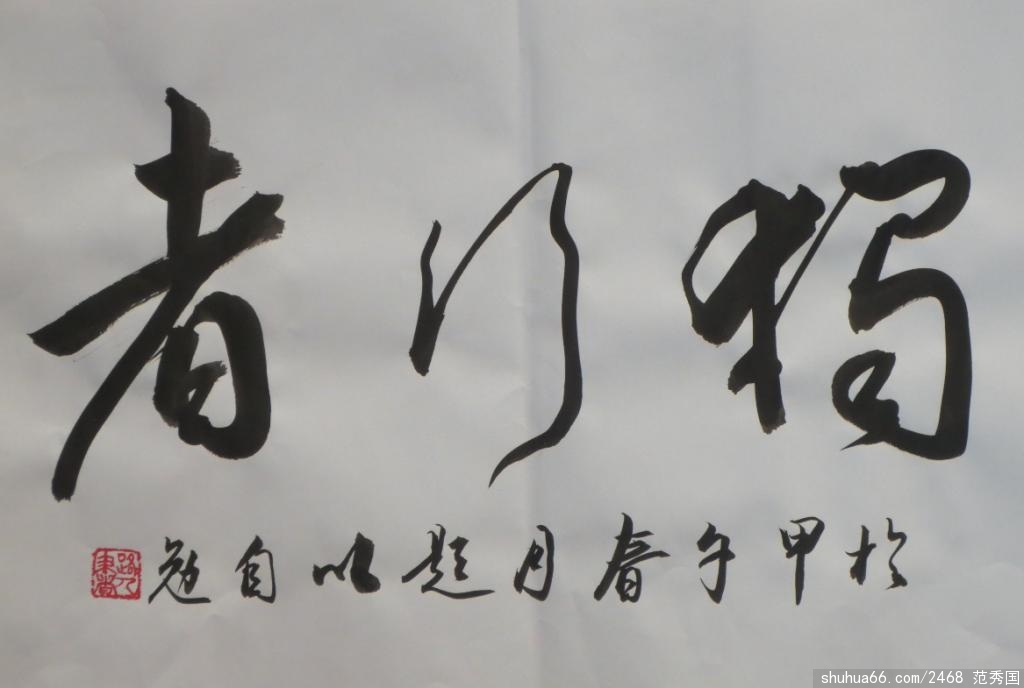 獨行者
於甲午春月題以自勉
shuhua66.com/2468 范秀国